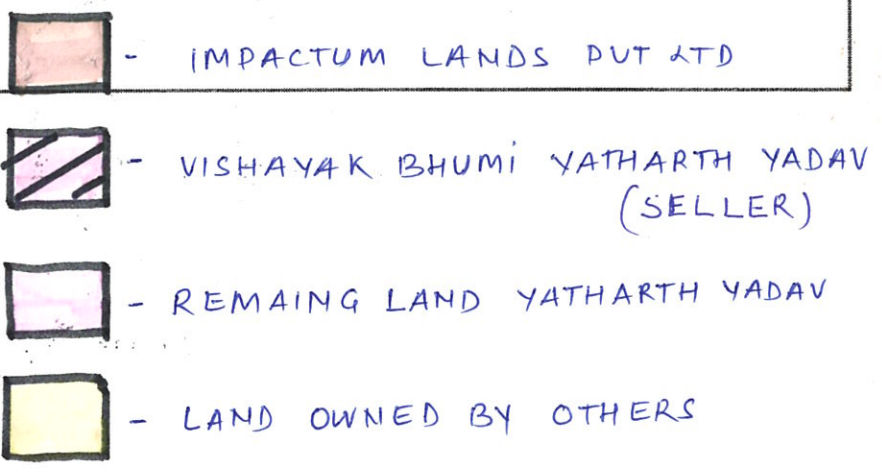 - IMPACTUM LANDS PVT LTD
- VISHAYAK BHUMI YATHARTH YADAV
(SELLER)
- REMAING LAND YATHARTH YADAV
- LAND OWNED BY OTHERS